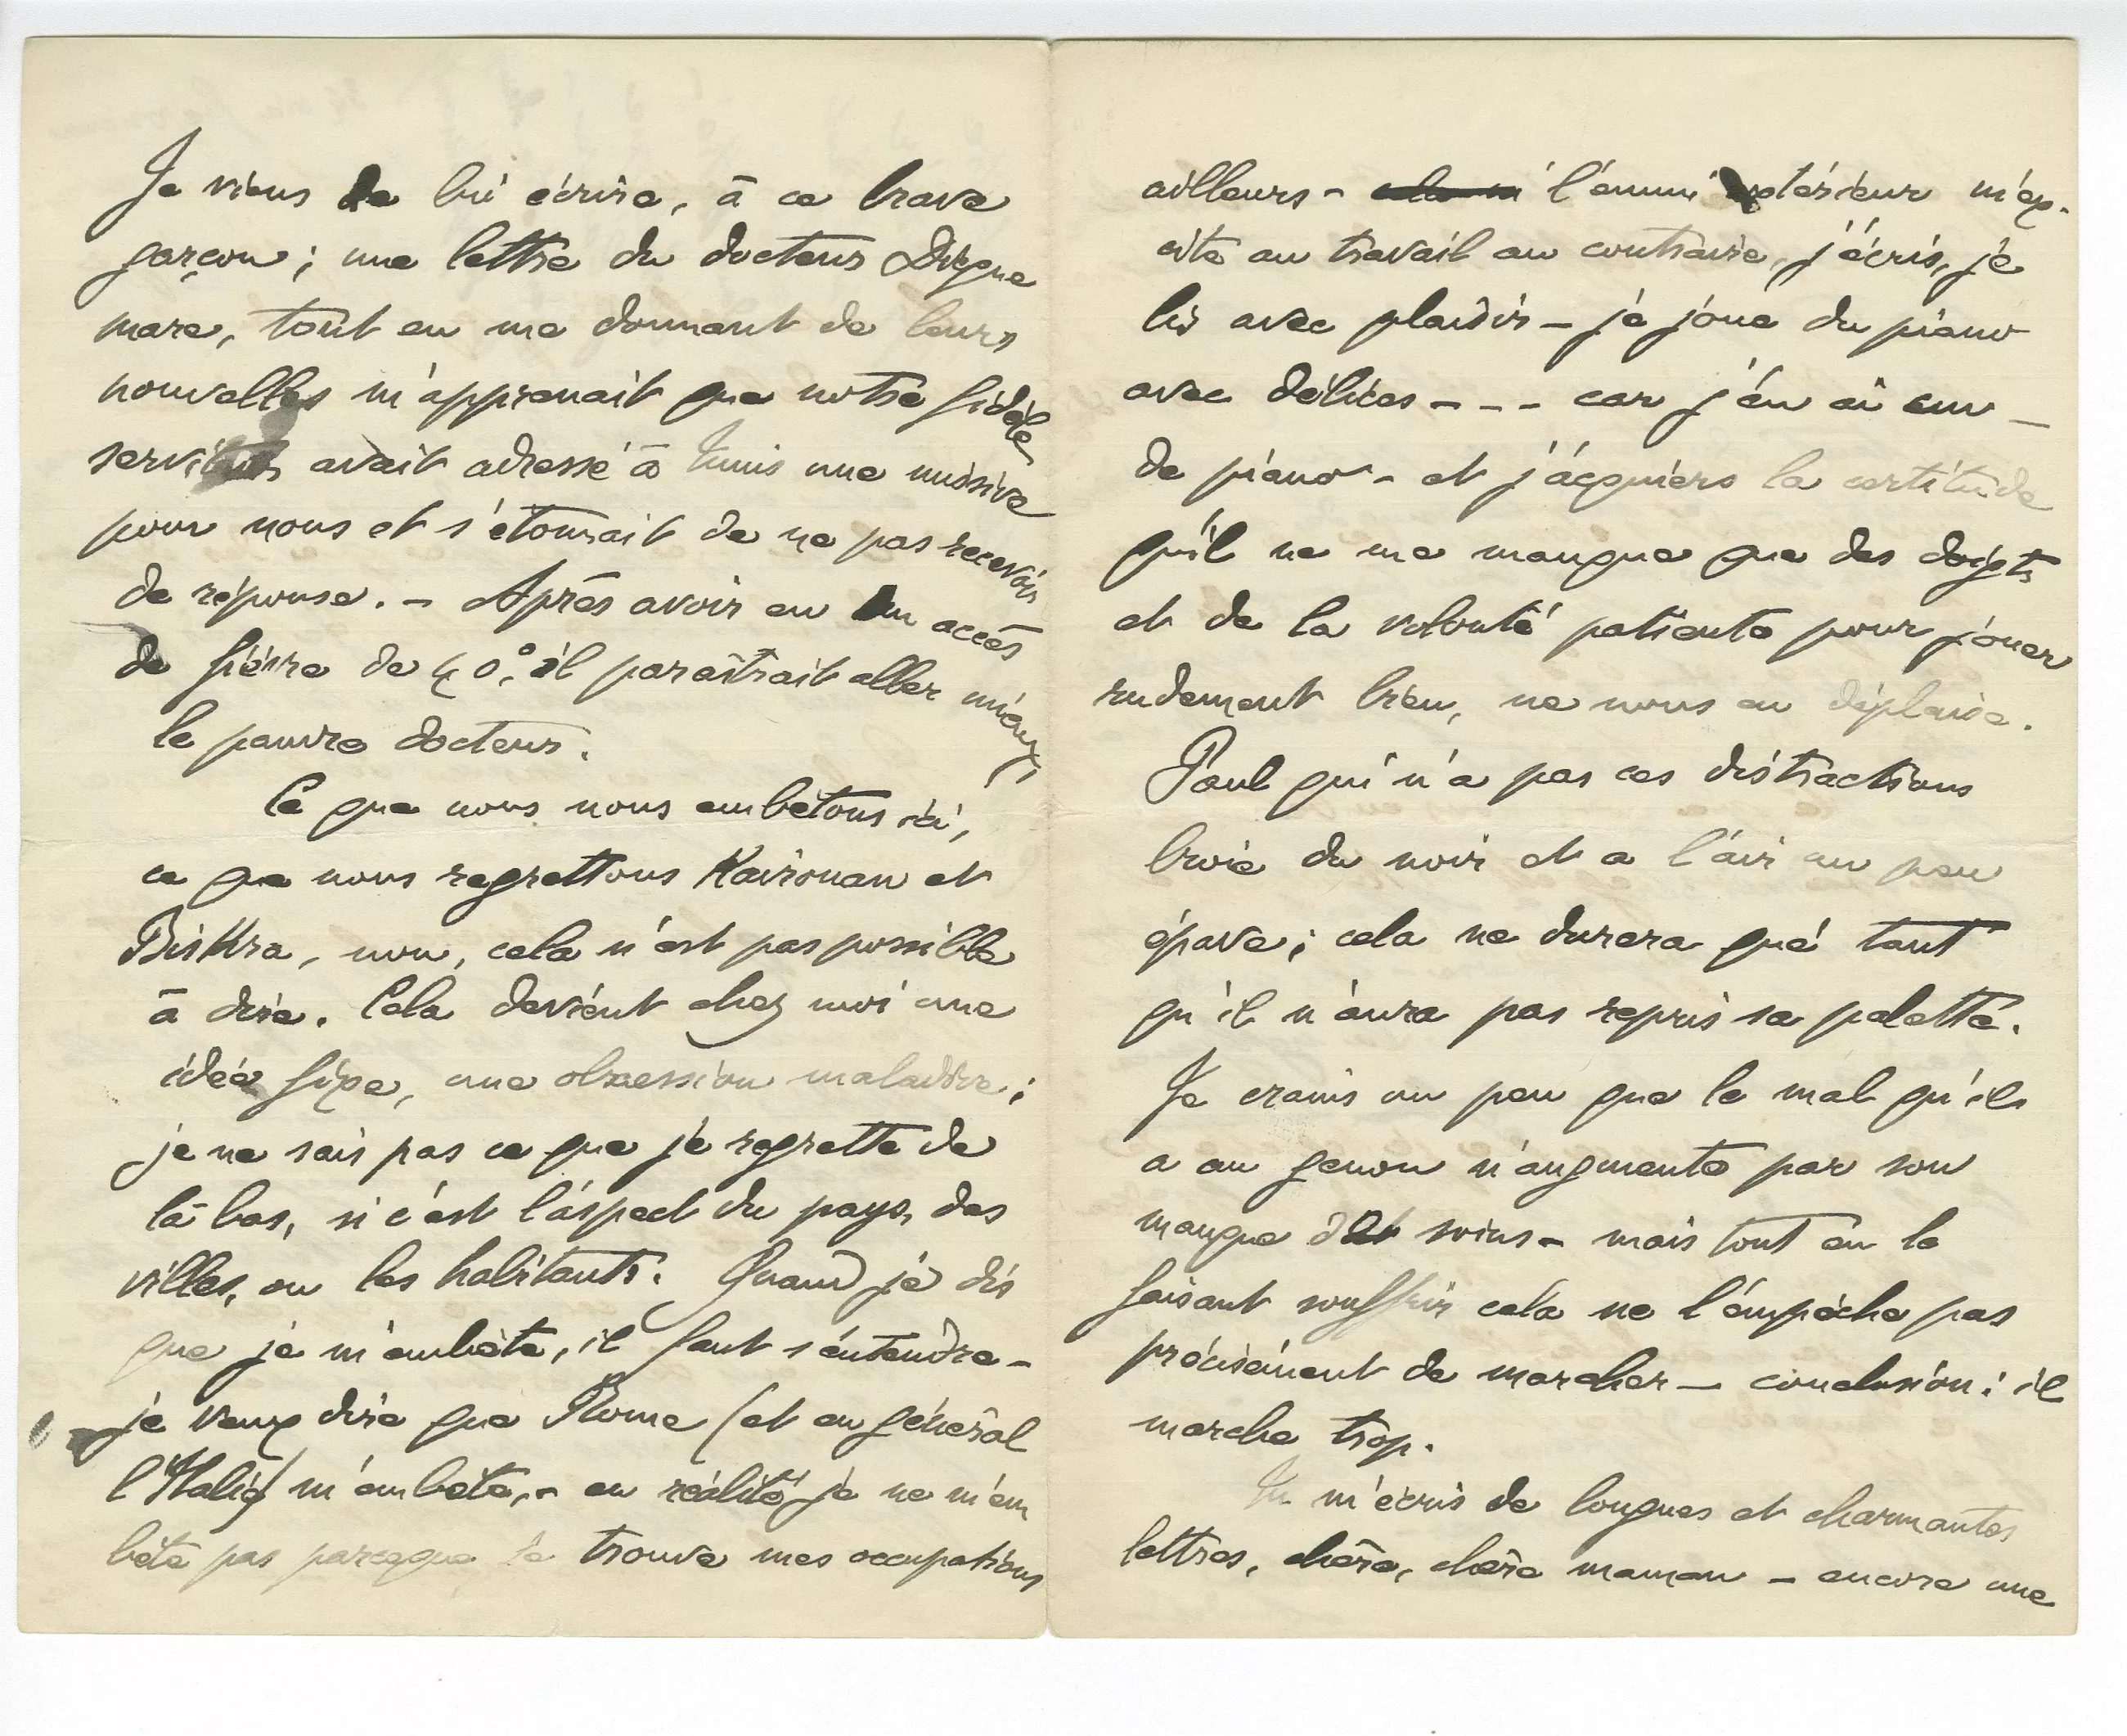 Je viens de lui écrire, à ce brave
garçon ; une lettre du docteur Digue
mare, tout en me donnant de leurs
nouvelles m'apprenait que notre fidèle
serviteur avait adressé à Tunis une missive
pour nous et s'étonnait de ne pas recevoir
de réponse. – Après avoir eu un accès
de fièvre de 40°, il paraîtrait aller mieux,
le pauvre docteur.
Ce que nous nous embêtons ici,
ce que nous regrettons Kairouan et
Biskra, non, cela n'est pas possible
à dire. Cela devient chez moi une
idée fixe, une obsession maladive ;
je ne sais pas ce que je regrette de
là bas, si c'est l'aspect du pays, des
villes, ou les habitants. Quand je dis
que je m'embête, il faut s'entendre –
je veux dire que Rome (et en général
l'Italie) m'embête, – en réalité je ne m'em
bête pas parceque je trouve mes occupations
ailleurs – l'ennui extérieur m'ex-
cite au travail au contraire, j'écris, je
lis avec plaisir – je joue du piano
avec délices - - - car j'en ai un –
de piano – et j'acquiers la certitude
qu'il ne me manque que des doigts
et de la volonté patiente pour jouer
rudement bien, ne nous en déplaise.
Paul qui n'a pas ces distractions
broie du noir et a l'air un peu
épave ; cela ne durera que tant
qu'il n'aura pas repris sa palette.
Je crains un peu que le mal qu'il
a au genou n'augmente par son
manque de soins – mais tout en le
faisant souffrir cela ne l'empêche pas
précisément de marcher – conclusion : il
marche trop.
Tu m'écris de longues et charmantes
lettres, chère, chère maman – encore une